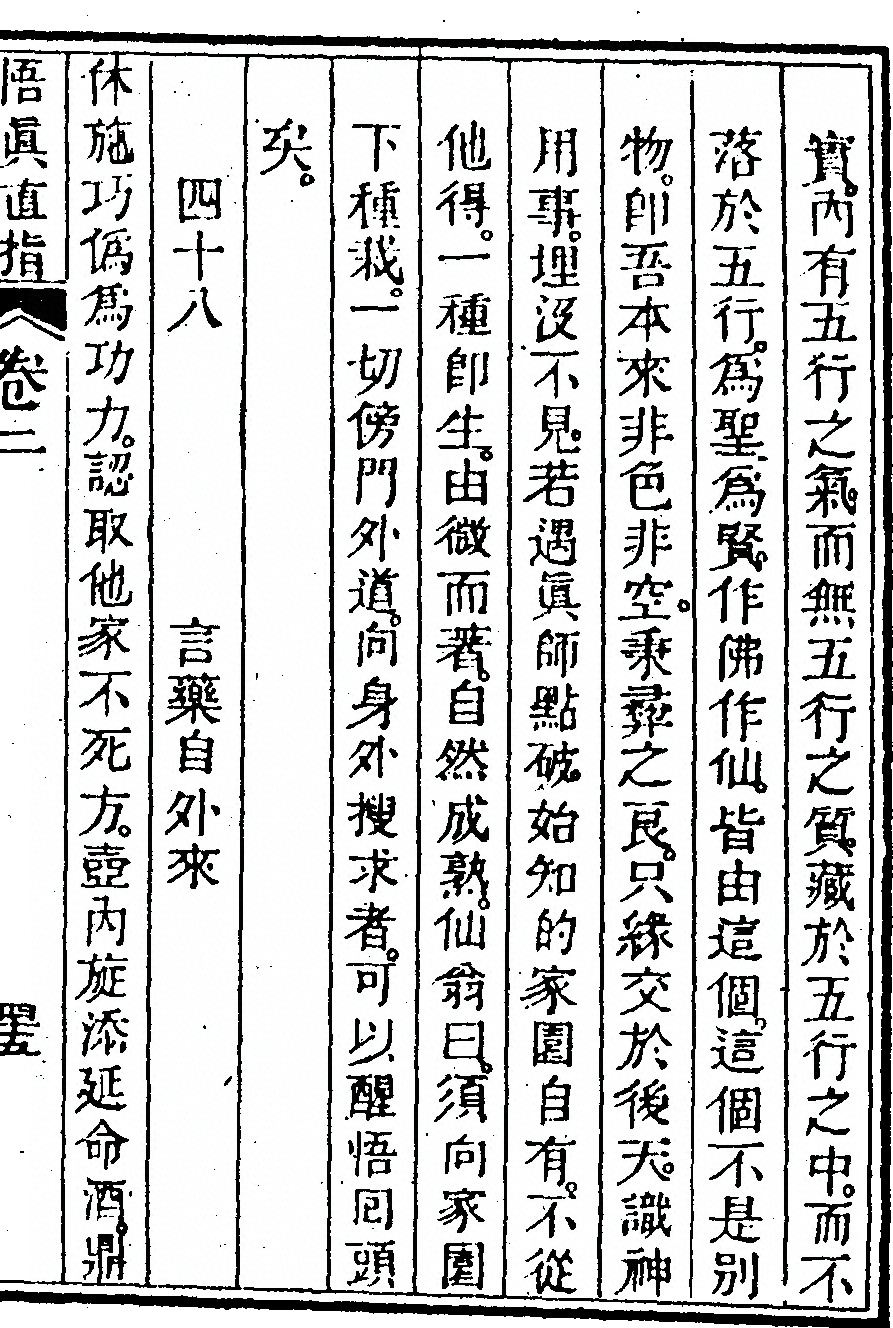 實。內有五行之氣。而無五行之質。藏於五行之中。而不
落於五行。為聖為賢。作佛作仙。皆由這個。這個不是別
物。即吾本來非色非空。秉彞之良。只緣交於後天。識神
用事。埋沒不見。若遇眞師點破。始知的家園自有。不從
他得。一種即生。由微而著。自然成熟。仙翁曰。須向家園
下種栽。一切傍門外道。向身外搜求者。可以醒悟回頭
矣。
四十八　言藥自外來
休施巧偽為功力。認取他家不死方。壺內旋添延命酒。鼎
悟眞直指　卷二　四五